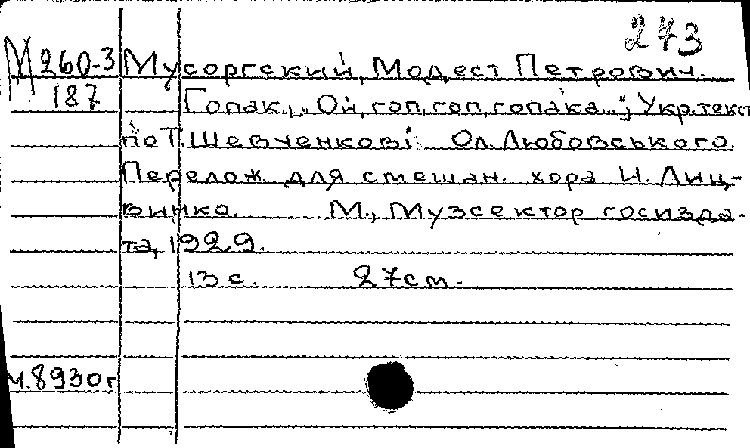 273
М 260-3 Мусоргский, Модест Петрович.
187 Гопак, „Ой, гоп, гоп, гопака..."; Укр. текст
по Т. Шевченкові Ол. Любовського.
Перелож. для смешан. хора И. Лиц-
винко. М., Музсектор госизда-
та, 1929.
13 с. 27 см.
м. 8930г